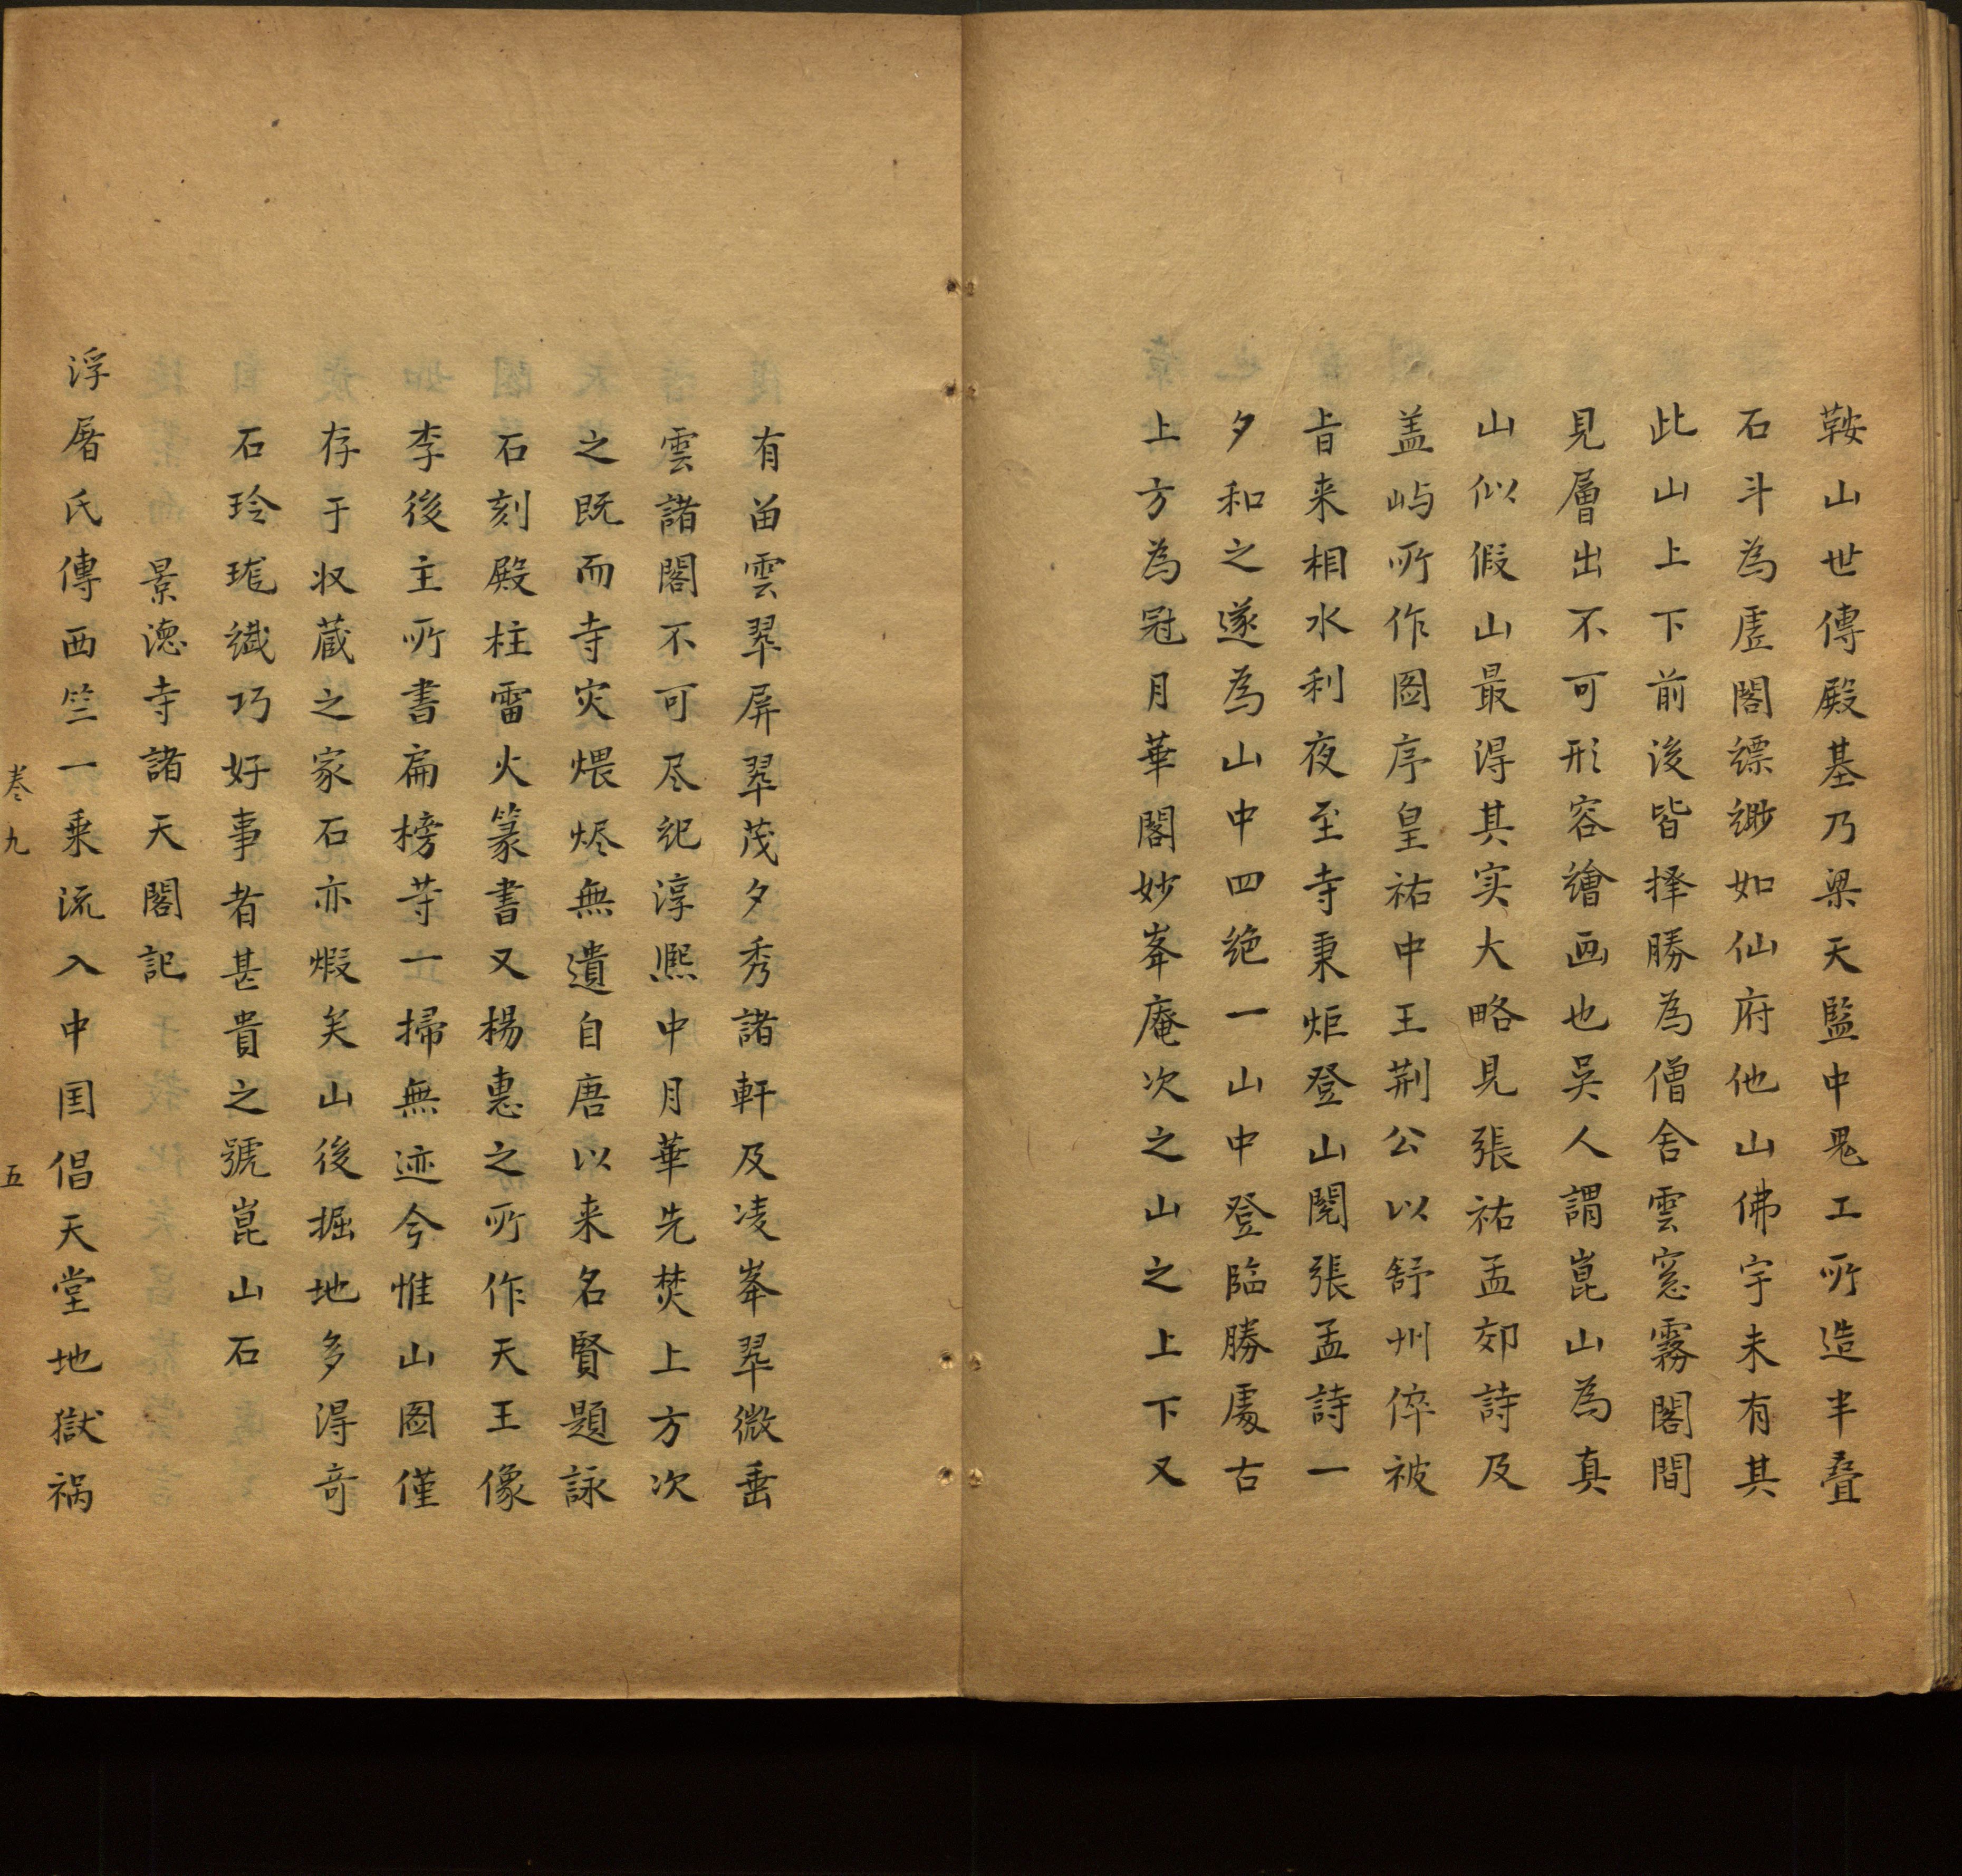 鞍山世傳殿基乃梁天監中鬼工所造半叠
石斗為虛閣縹緲如仙府他山佛宇未有其
此山上下前後皆择勝為僧舍雲窓霧閣間
見層出不可形容繪画也吳人謂崑山為真
山似假山最得其实大略見張祐孟郊詩及
盖屿所作图序皇祐中王荆公以舒州倅被
㫖来相水利夜至寺秉炬登山閱張孟詩一
夕和之遂為山中四绝一山中登臨勝處古
上方為冠月華閣妙峯庵次之山之上下又
有留雲翠屏翠茂夕秀諸軒及凌峯翠微垂
雲諸閣不可尽紀淳熈中月華先焚上方次
之既而寺灾煨烬無遺自唐以来名賢題詠
石刻殿柱雷火篆書又楊惠之所作天王像
李後主所書扁榜䓁一掃無迹今惟山图僅
存于収蔵之家石亦煆矣山後掘地多淂奇
石玲珑纎巧好事者甚貴之號崑山石
景德寺諸天閣記
浮屠氏傳西竺一乗流入中国倡天堂地獄禍
卷九
五